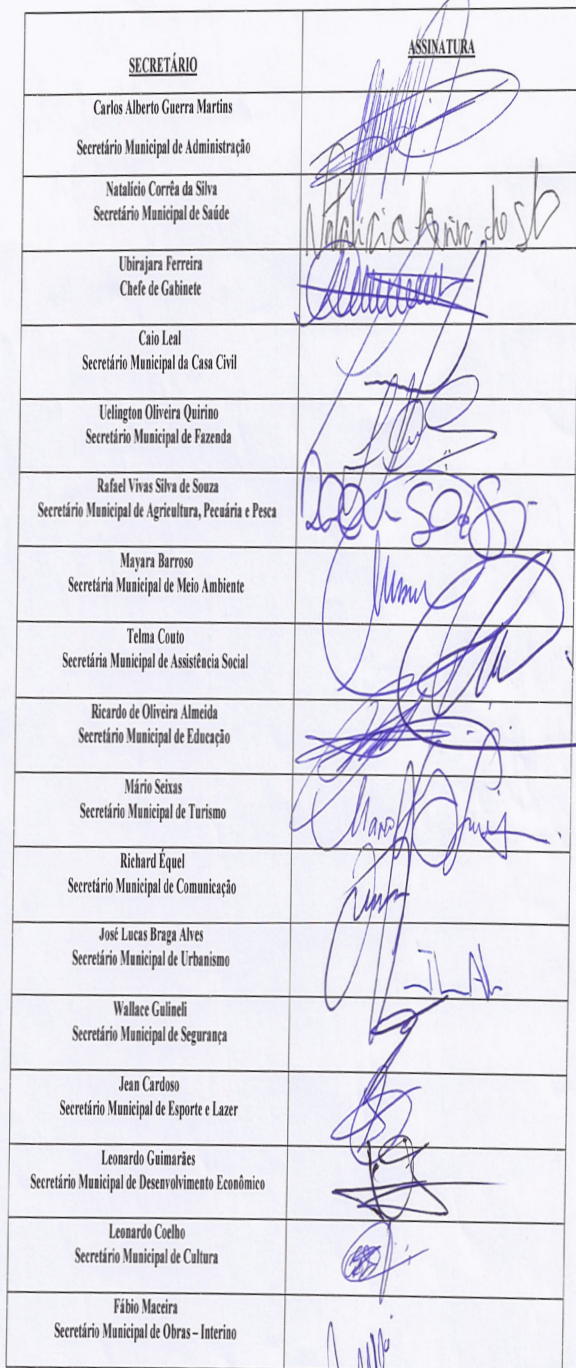 SECRETÁRIO
ASSINATURA
Carlos Alberto Guerra Martins
Secretário Municipal de Administração
Natalício Corrêa da Silva
Secretário Municipal de Saúde
Ubirajara Ferreira
Chefe de Gabinete
Caio Leal
Secretário Municipal da Casa Civil
Uelington Oliveira Quirino
Secretário Municipal de Fazenda
Rafael Vivas Silva de Souza
Secretário Municipal de Agricultura, Pecuária e Pesca
Mayara Barroso
Secretária Municipal de Meio Ambiente
Telma Couto
Secretária Municipal de Assistência Social
Ricardo de Oliveira Almeida
Secretário Municipal de Educação
Mário Seixas
Secretário Municipal de Turismo
Richard Équel
Secretário Municipal de Comunicação
José Lucas Braga Alves
Secretário Municipal de Urbanismo
Wallace Gulineli
Secretário Municipal de Segurança
Jean Cardoso
Secretário Municipal de Esporte e Lazer
Leonardo Guimarães
Secretário Municipal de Desenvolvimento Econômico
Leonardo Coelho
Secretário Municipal de Cultura
Fábio Maceira
Secretário Municipal de Obras – Interino